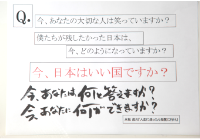 Q.
今、あなたの大切な人は笑っていますか？
僕たちが残したかった日本は、
今、どのようになっていますか？
今、日本はいい国ですか？
今、あなたは何と答えますか？
今、あなたに何ができますか？